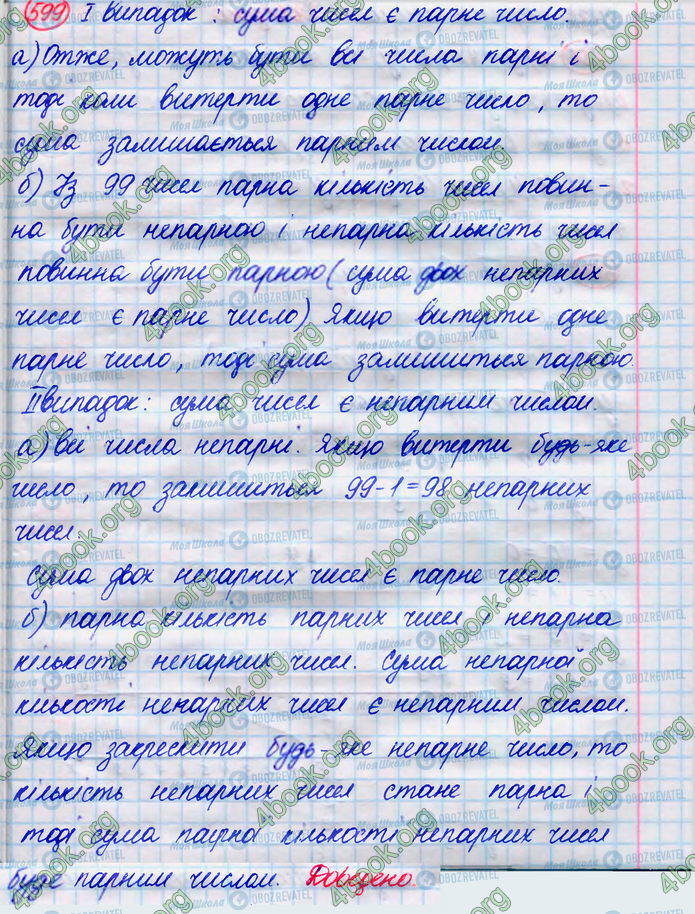 599 I випадок: сума чисел є парне число.
а) Отже, можуть бути всі числа парні і
тоді коли витерти одне парне число, то
сума залишається парним числом.
б) Із 99 чисел парна кількість чисел повин-
на бути непарною і непарна кількість чисел
повинна бути парною (сума двох непарних
чисел є парне число) Якщо витерти одне
парне число, тоді сума залишиться парною.
II випадок: сума чисел є непарним числом.
а) всі числа непарні. Якщо витерти будь-яке
число, то залишиться 99-1=98 непарних
чисел.
Сума двох непарних чисел є парне число.
б) парна кількість парних чисел і непарна
кількість непарних чисел. Сума непарної
кількості непарних чисел є непарним числом.
Якщо закреслити будь-яке непарне число, то
кількість непарних чисел стане парна і
тоді сума парної кількості непарних чисел
буде парним числом. Доведено.